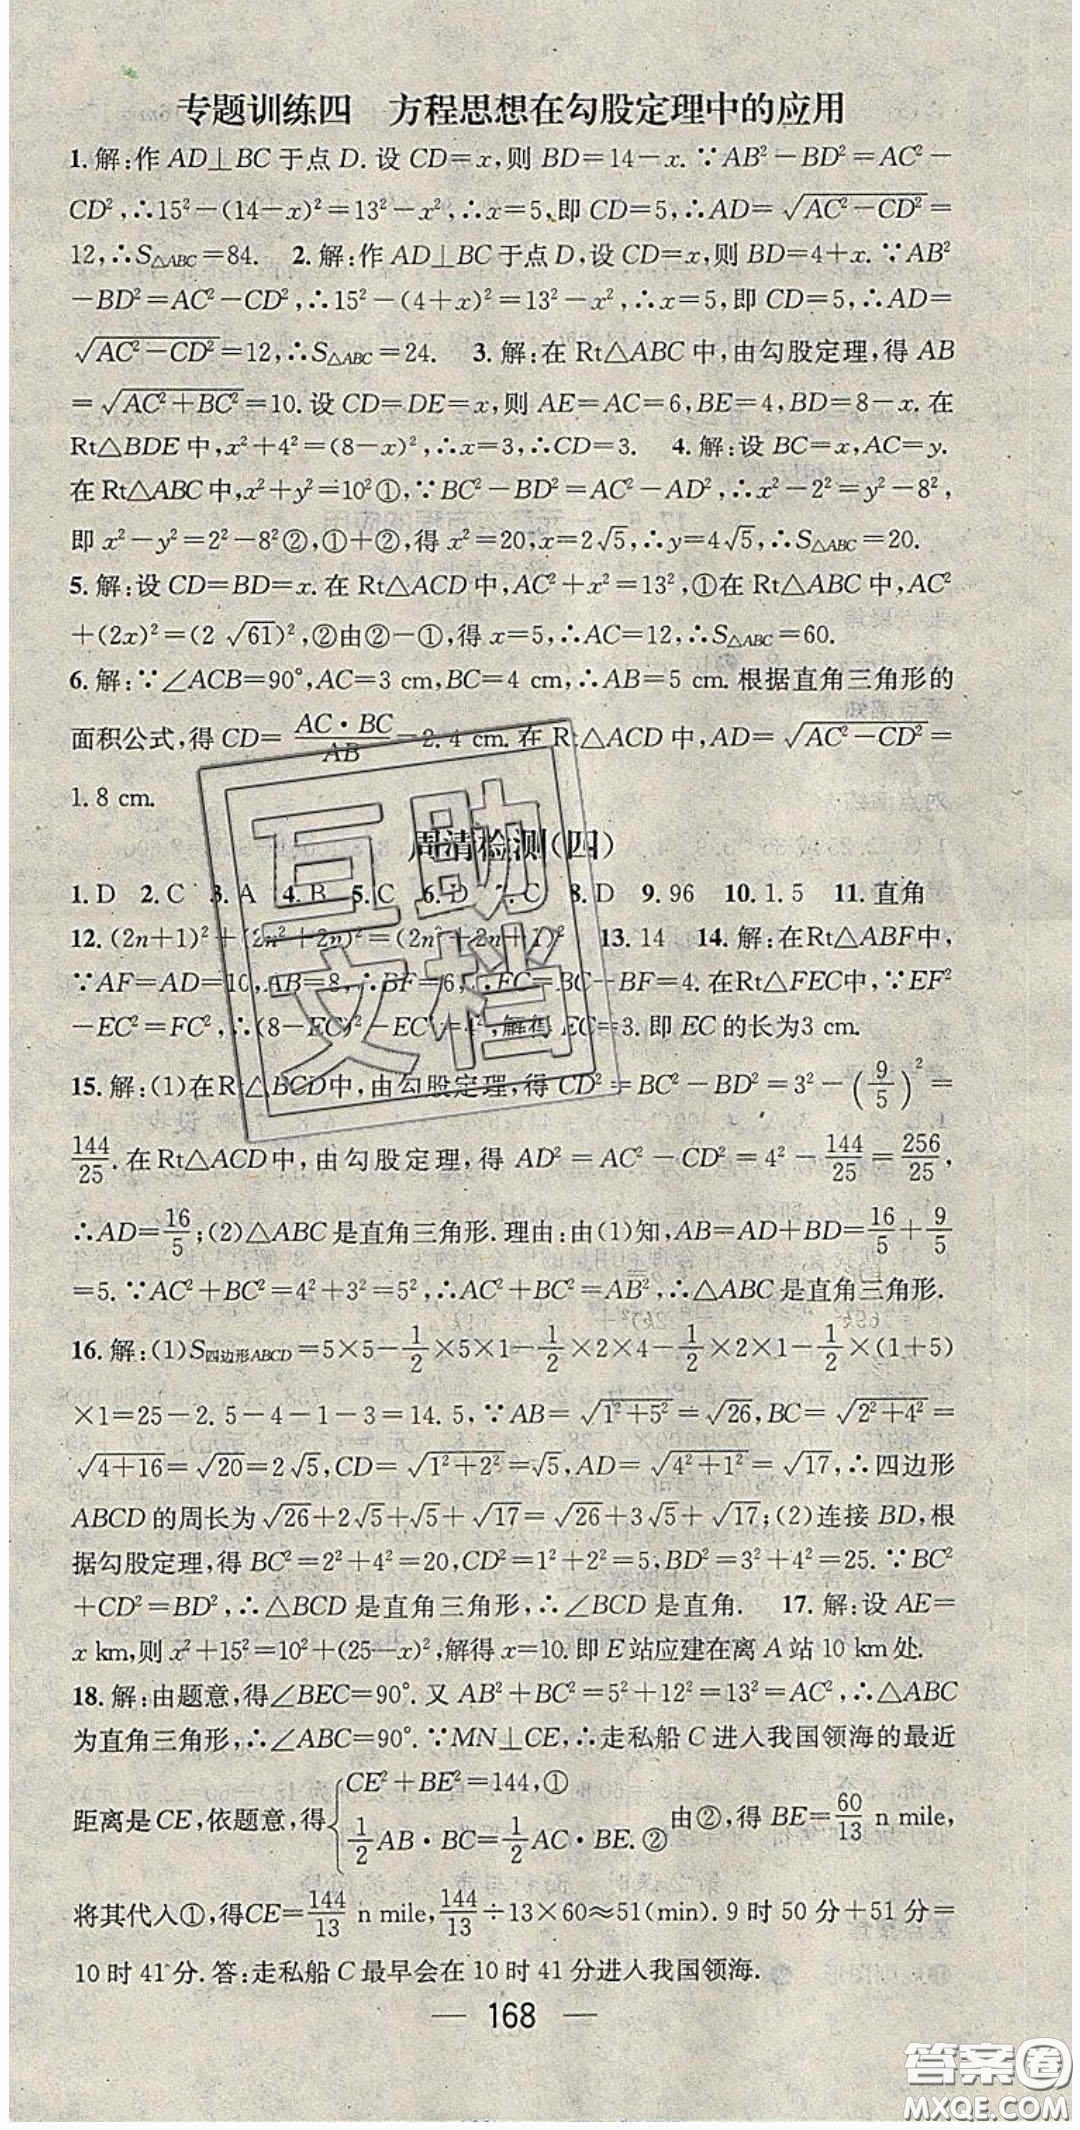 专题训练四　方程思想在勾股定理中的应用
1.解:作AD⊥BC于点D.设CD=x,则BD=14-x.∵AB²-BD²=AC²-
CD²,∴15²-(14-x)²=13²-x²,∴x=5,即CD=5,∴AD=√(AC²-CD²)=
12,∴S△ABC=84.　2.解:作AD⊥BC于点D,设CD=x,则BD=4+x.∵AB²
-BD²=AC²-CD²,∴15²-(4+x)²=13²-x²,∴x=5,即CD=5,∴AD=
√(AC²-CD²)=12,∴S△ABC=24.　3.解:在Rt△ABC中,由勾股定理,得AB
=√(AC²+BC²)=10.设CD=DE=x,则AE=AC=6,BE=4,BD=8-x.在
Rt△BDE中,x²+4²=(8-x)²,∴x=3,∴CD=3.　4.解:设BC=x,AC=y.
在Rt△ABC中,x²+y²=10²①,∵BC²-BD²=AC²-AD²,∴x²-2²=y²-8²,
即x²-y²=2²-8²②,①+②,得x²=20,x=2√5,∴y=4√5,∴S△ABC=20.
5.解:设CD=BD=x.在Rt△ACD中,AC²+x²=13²,①在Rt△ABC中,AC²
+(2x)²=(2√61)²,②由②-①,得x=5,∴AC=12,∴S△ABC=60.
6.解:∵∠ACB=90°,AC=3 cm,BC=4 cm,∴AB=5 cm.根据直角三角形的
面积公式,得CD=AC·BC/AB=2.4 cm.在Rt△ACD中,AD=√(AC²-CD²)=
1.8 cm.
周清检测(四)
1.D　2.C　3.A　4.B　5.C　6.D　7.C　8.D　9.96　10.1.5　11.直角
12.(2n+1)²+(2n²+2n)²=(2n²+2n+1)²　13.14　14.解:在Rt△ABF中,
∵AF=AD=10,AB=8,∴BF=6,∵FC=BC-BF=4.在Rt△FEC中,∵EF²
-EC²=FC²,∴(8-EC)²-EC²=4²,解得EC=3.即EC的长为3 cm.
15.解:(1)在Rt△BCD中,由勾股定理,得CD²=BC²-BD²=3²-(9/5)²=
144/25.在Rt△ACD中,由勾股定理,得AD²=AC²-CD²=4²-144/25=256/25,
∴AD=16/5;(2)△ABC是直角三角形.理由:由(1)知,AB=AD+BD=16/5+9/5
=5.∵AC²+BC²=4²+3²=5²,∴AC²+BC²=AB²,∴△ABC是直角三角形.
16.解:(1)S四边形ABCD=5×5-1/2×5×1-1/2×2×4-1/2×2×1-1/2×(1+5)
×1=25-2.5-4-1-3=14.5,∵AB=√(1²+5²)=√26,BC=√(2²+4²)=
√(4+16)=√20=2√5,CD=√(1²+2²)=√5,AD=√(4²+1²)=√17,∴四边形
ABCD的周长为√26+2√5+√5+√17=√26+3√5+√17;(2)连接BD,根
据勾股定理,得BC²=2²+4²=20,CD²=1²+2²=5,BD²=3²+4²=25.∵BC²
+CD²=BD²,∴△BCD是直角三角形,∴∠BCD是直角.　17.解:设AE=
x km,则x²+15²=10²+(25-x)²,解得x=10.即E站应建在离A站10 km处.
18.解:由题意,得∠BEC=90°.又AB²+BC²=5²+12²=13²=AC²,∴△ABC
为直角三角形,∴∠ABC=90°.∵MN⊥CE,∴走私船C进入我国领海的最近
距离是CE,依题意,得{CE²+BE²=144,① 1/2AB·BC=1/2AC·BE.②由②,得BE=60/13 n mile,
将其代入①,得CE=144/13 n mile,144/13÷13×60≈51(min).9时50分+51分=
10时41分.答:走私船C最早会在10时41分进入我国领海.
— 168 —
互助
文档
答案圈
MXQE.COM